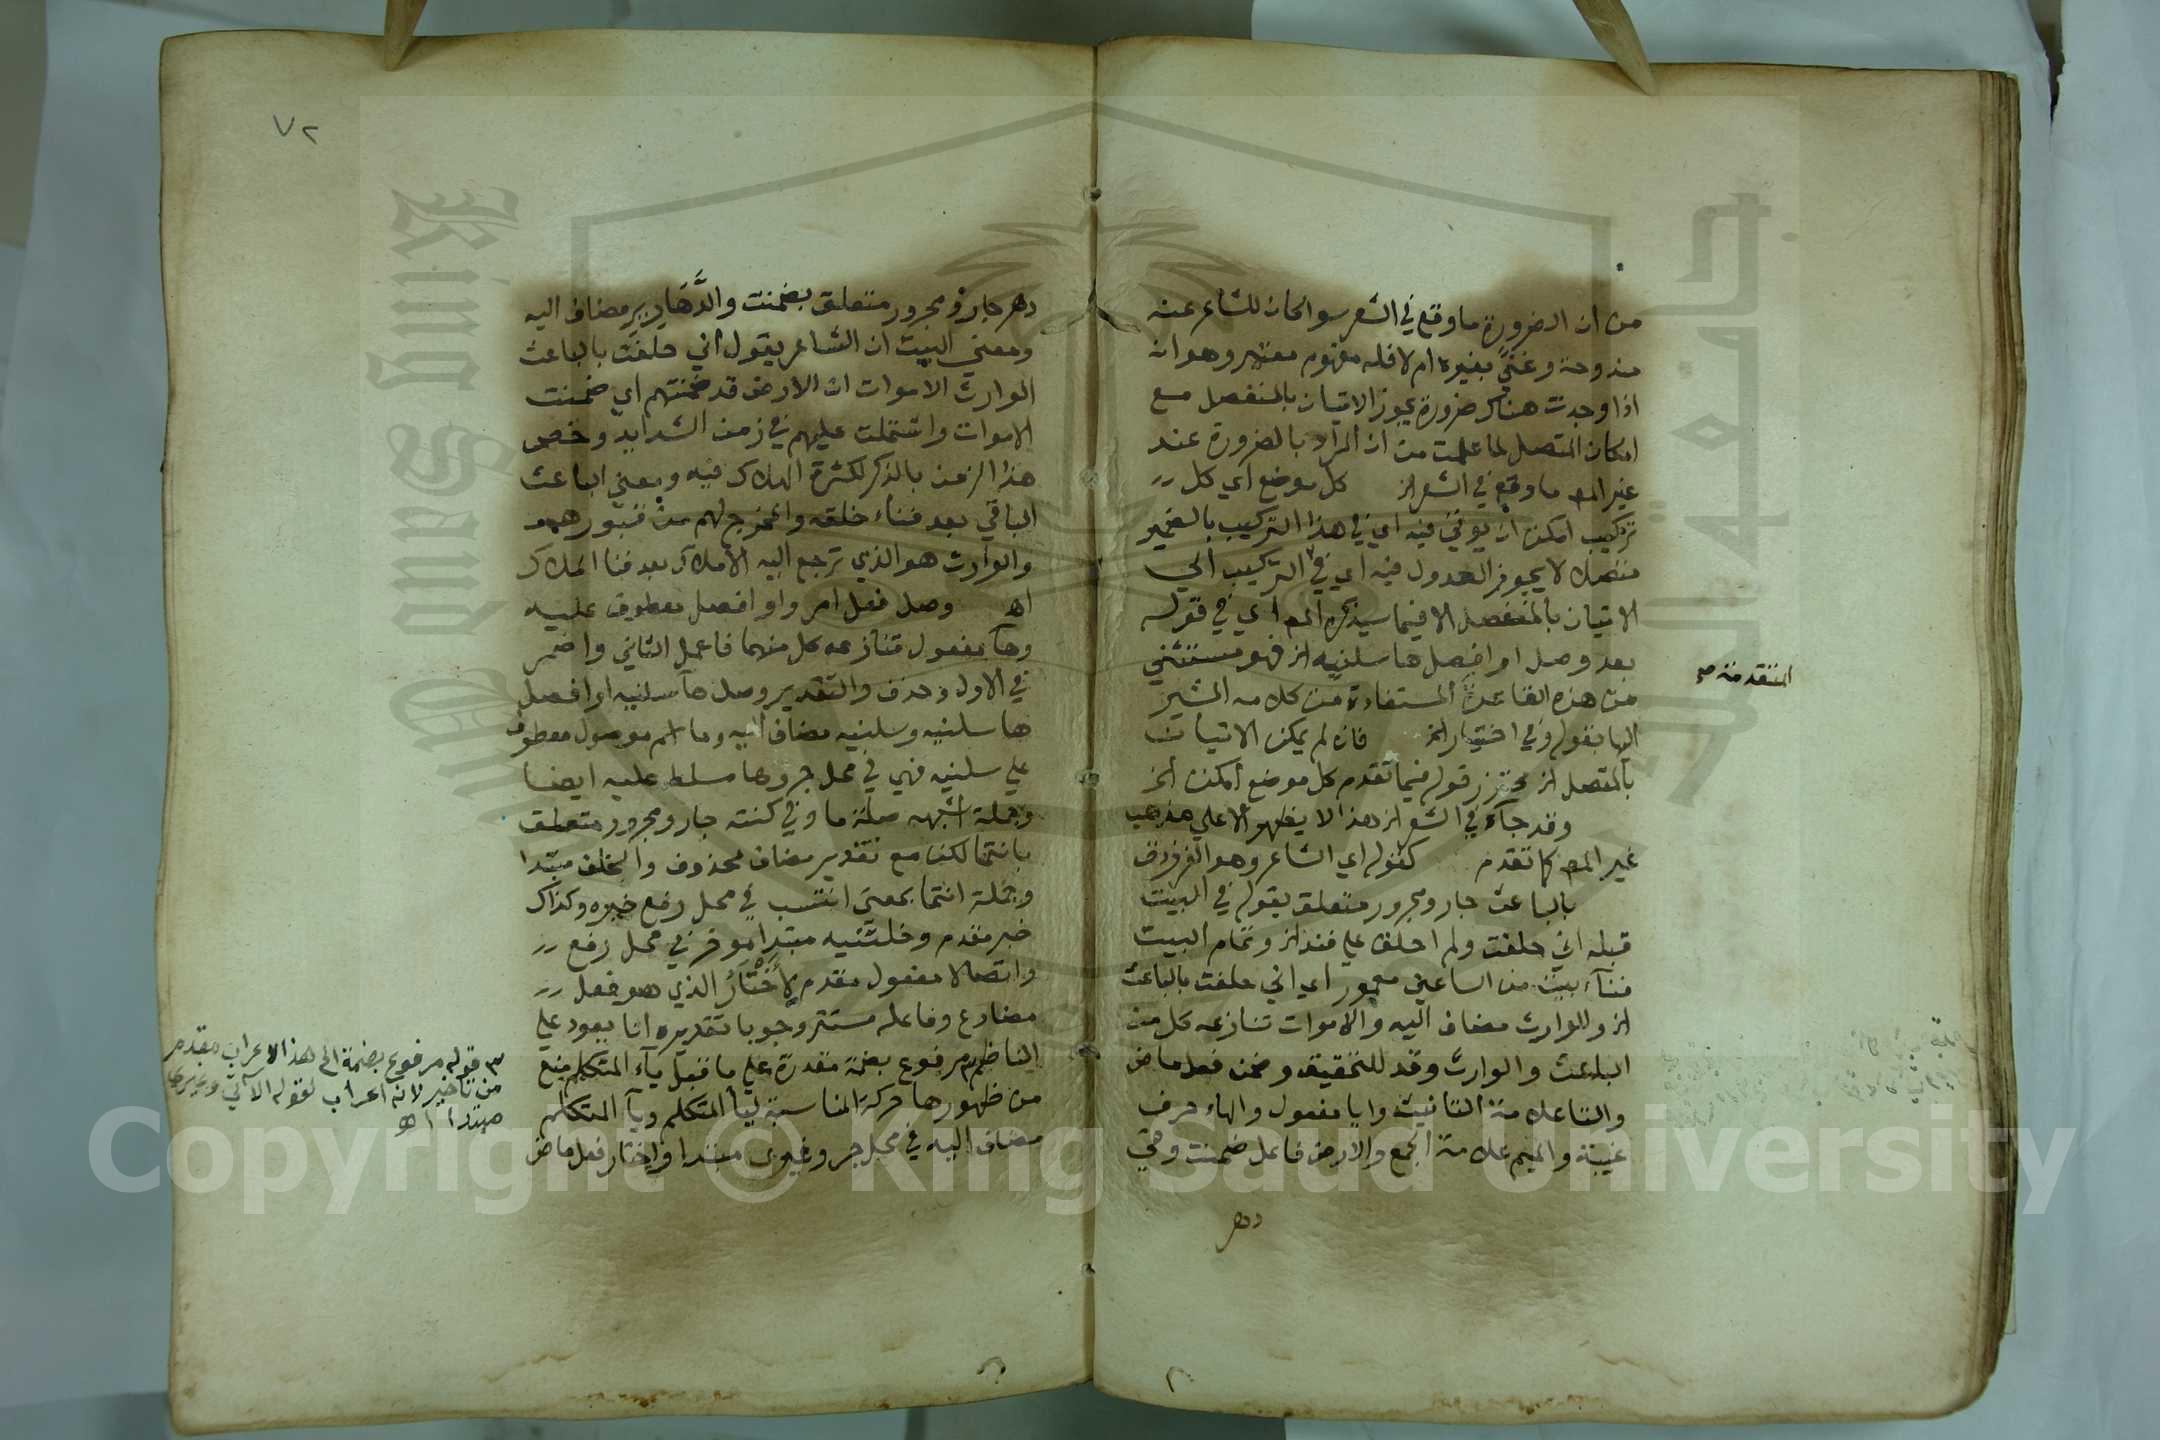 من ان الضرورة ما وقع في الشعر سوا كان للشاعر عنه
مندوحة وغني بغيره ام لا فله مفهوم معتبر وهو انه
اذا وجدت هناك ضرورة يجوز الاتيان بالمنفصل مع
امكان المتصل لما علمت من ان المراد بالضرورة عند
غير المص ما وقع في الشعر الخ كل موضع اي كل
تركيب امكن ان يوتي فيه اي في هذا التركيب بالضمير
متصلا لا يجوز العدول فيه اي في التركيب الي
الاتيان بالمنفصل الا فيما سيذكره المص اي في قوله
بعد وصل او افصل ها سلنيه الخ فهو مستثني
من هذه القاعدة المستفادة من كلامه المشير
اليها بقوله وفي اختيار الخ فان لم يمكن الاتيان
بالمتصل الخ محترز قوله فيما تقدم كل موضع أمكن الخ
وقد جآء في الشعر الخ هذا لا يظهر الا علي مذهب
غير المص كما تقدم كقوله اي الشاعر وهو الفرزدق
بالباعث جار ومجرور متعلق بقوله في البيت
قبله اني حلفت ولم احلف علي فند الخ وتمام البيت
فنآء بيت من الساعين معمور اي اني حلفت بالباعث
الخ والوارث مضاف اليه والاموات تنازعه كل من
الباعث والوارث وقد للتحقيق وضمن فعل ماض
والتا علامة التانيث وايا مفعول والهاء حرف
غيبة والميم علامة الجمع والارض فاعل ضمنت وفي
دهر
المتقدمة صح
٧٢
دهر جار ومجرور متعلق بضمنت والدَّهَارِيرِ مضاف اليه
ومعني البيت ان الشاعر يقول أني حلفت بالباعث
الوارث الاموات ان الارض قد ضمنتهم اي ضمنت
الاموات واشتملت عليهم في زمن الشدايد وخص
هذا الزمن بالذكر لكثرة الهلاك فيه ومعني الباعث
الباقي بعد فناء خلقه والمخرج لهم من قبورهم
والوارث هو الذي ترجع اليه الأملاك بعد فنا الملاك
اه وصل فعل امر واو افصل معطوف عليه
وهآ مفعول تنازعه كل منهما فاعمل الثاني واضمر
في الاول وحذف والتقدير وصل هآ سلنيه او افصل
ها سلنيه وسلنيه مضاف اليه وما اسم موصول معطوف
علي سلنيه فهي في محل جر وها مسلط عليه ايضا
وجملة اشبهه صلة ما وفي كنته جار ومجرور متعلق
بانتما لكن مع تقدير مضاف محذوف والخلف مبتدا
وجملة انتما بمعني انتسب في محل رفع خبره وكذاك
خبر مقدم وخلتنيه مبتدا موخر في محل رفع
واتصالا مفعول مقدم لأَخْتَارُ الذي هو فعل
مضارع وفاعله مستتر وجوبا تقديره انا يعود علي
الناظم ٣ مرفوع بضمة مقدرة علي ما قبل يآء المتكلم منع
من ظهورها حركة المناسبة ليآ المتكلم ويآ المتكلم
مضاف اليه في محل جر وغيري مبتدا واختار فعل ماض
٣ قوله مرفوع بضمة الي هذا الاعراب مقدم
من تأخير لانه اعراب لقوله الآتي وغيري
مبتدا اه